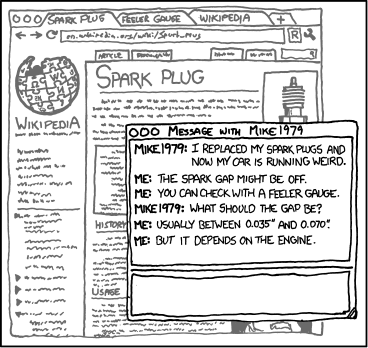 SPARK PLUG
FEELER GAUGE
WIKIPEDIA
+
en.wikipedia.org/wiki/Spark_plug
R
ARTICLE
SPARK PLUG
WIKIPEDIA
MESSAGE WITH MIKE1979
MIKE1979: I REPLACED MY SPARK PLUGS AND
NOW MY CAR IS RUNNING WEIRD.
ME: THE SPARK GAP MIGHT BE OFF.
ME: YOU CAN CHECK WITH A FEELER GAUGE.
MIKE1979: WHAT SHOULD THE GAP BE?
ME: USUALLY BETWEEN 0.035" AND 0.070".
ME: BUT IT DEPENDS ON THE ENGINE.
HISTORY
USAGE